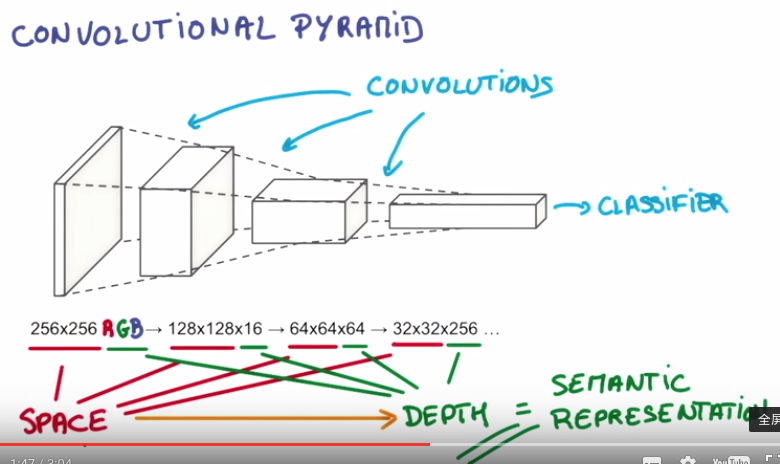 CONVOLUTIONAL PYRAMID
CONVOLUTIONS
CLASSIFIER
256x256 RGB → 128x128x16 → 64x64x64 → 32x32x256 ...
SPACE → DEPTH = SEMANTIC
REPRESENTATION
全屏
1:47 / 3:04
YouTube